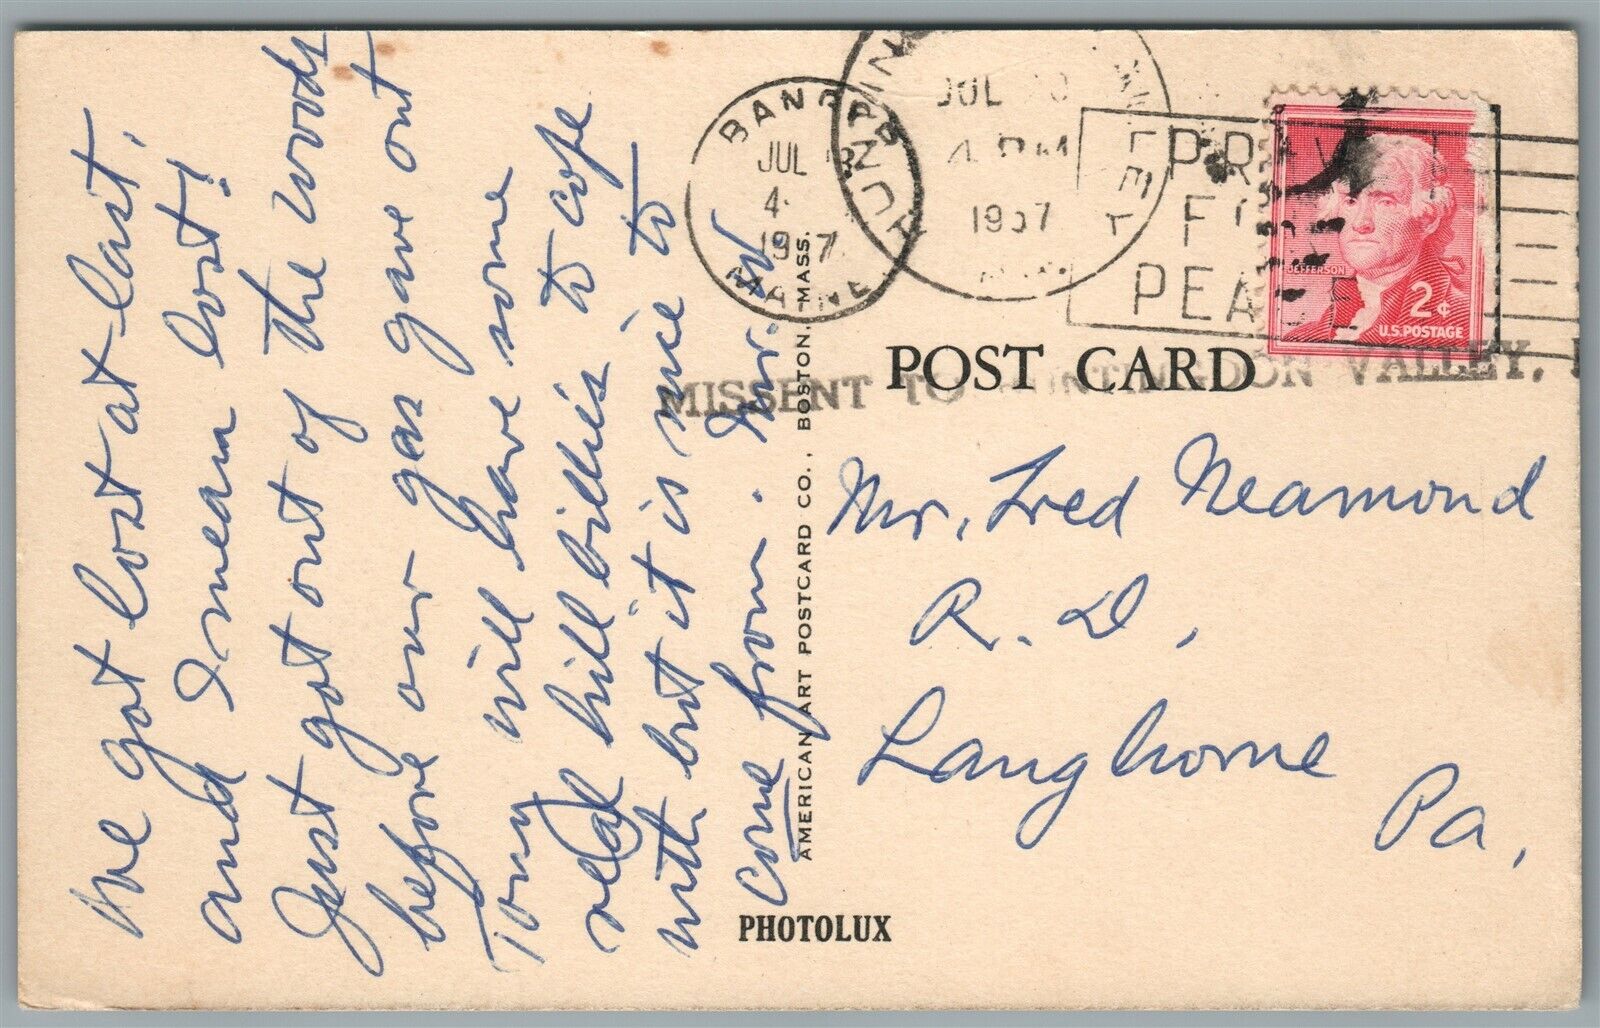 We got lost at last,
and I mean lost!
Just got out of the woods
before our gas gave out
Tony will have some
real hill billies to cope
with but it is nice to
come from. Mr. W.
AMERICAN ART POSTCARD CO., BOSTON, MASS.
PHOTOLUX
BANGOR
JUL
4
1957
MAINE
JUL
4 PM
1957
PRAY
FOR
PEACE
JEFFERSON
2¢
U.S. POSTAGE
POST CARD
MISSENT TO HUNTINGDON VALLEY,
Mr. Fred Neamond
R. D.,
Langhorne
Pa,